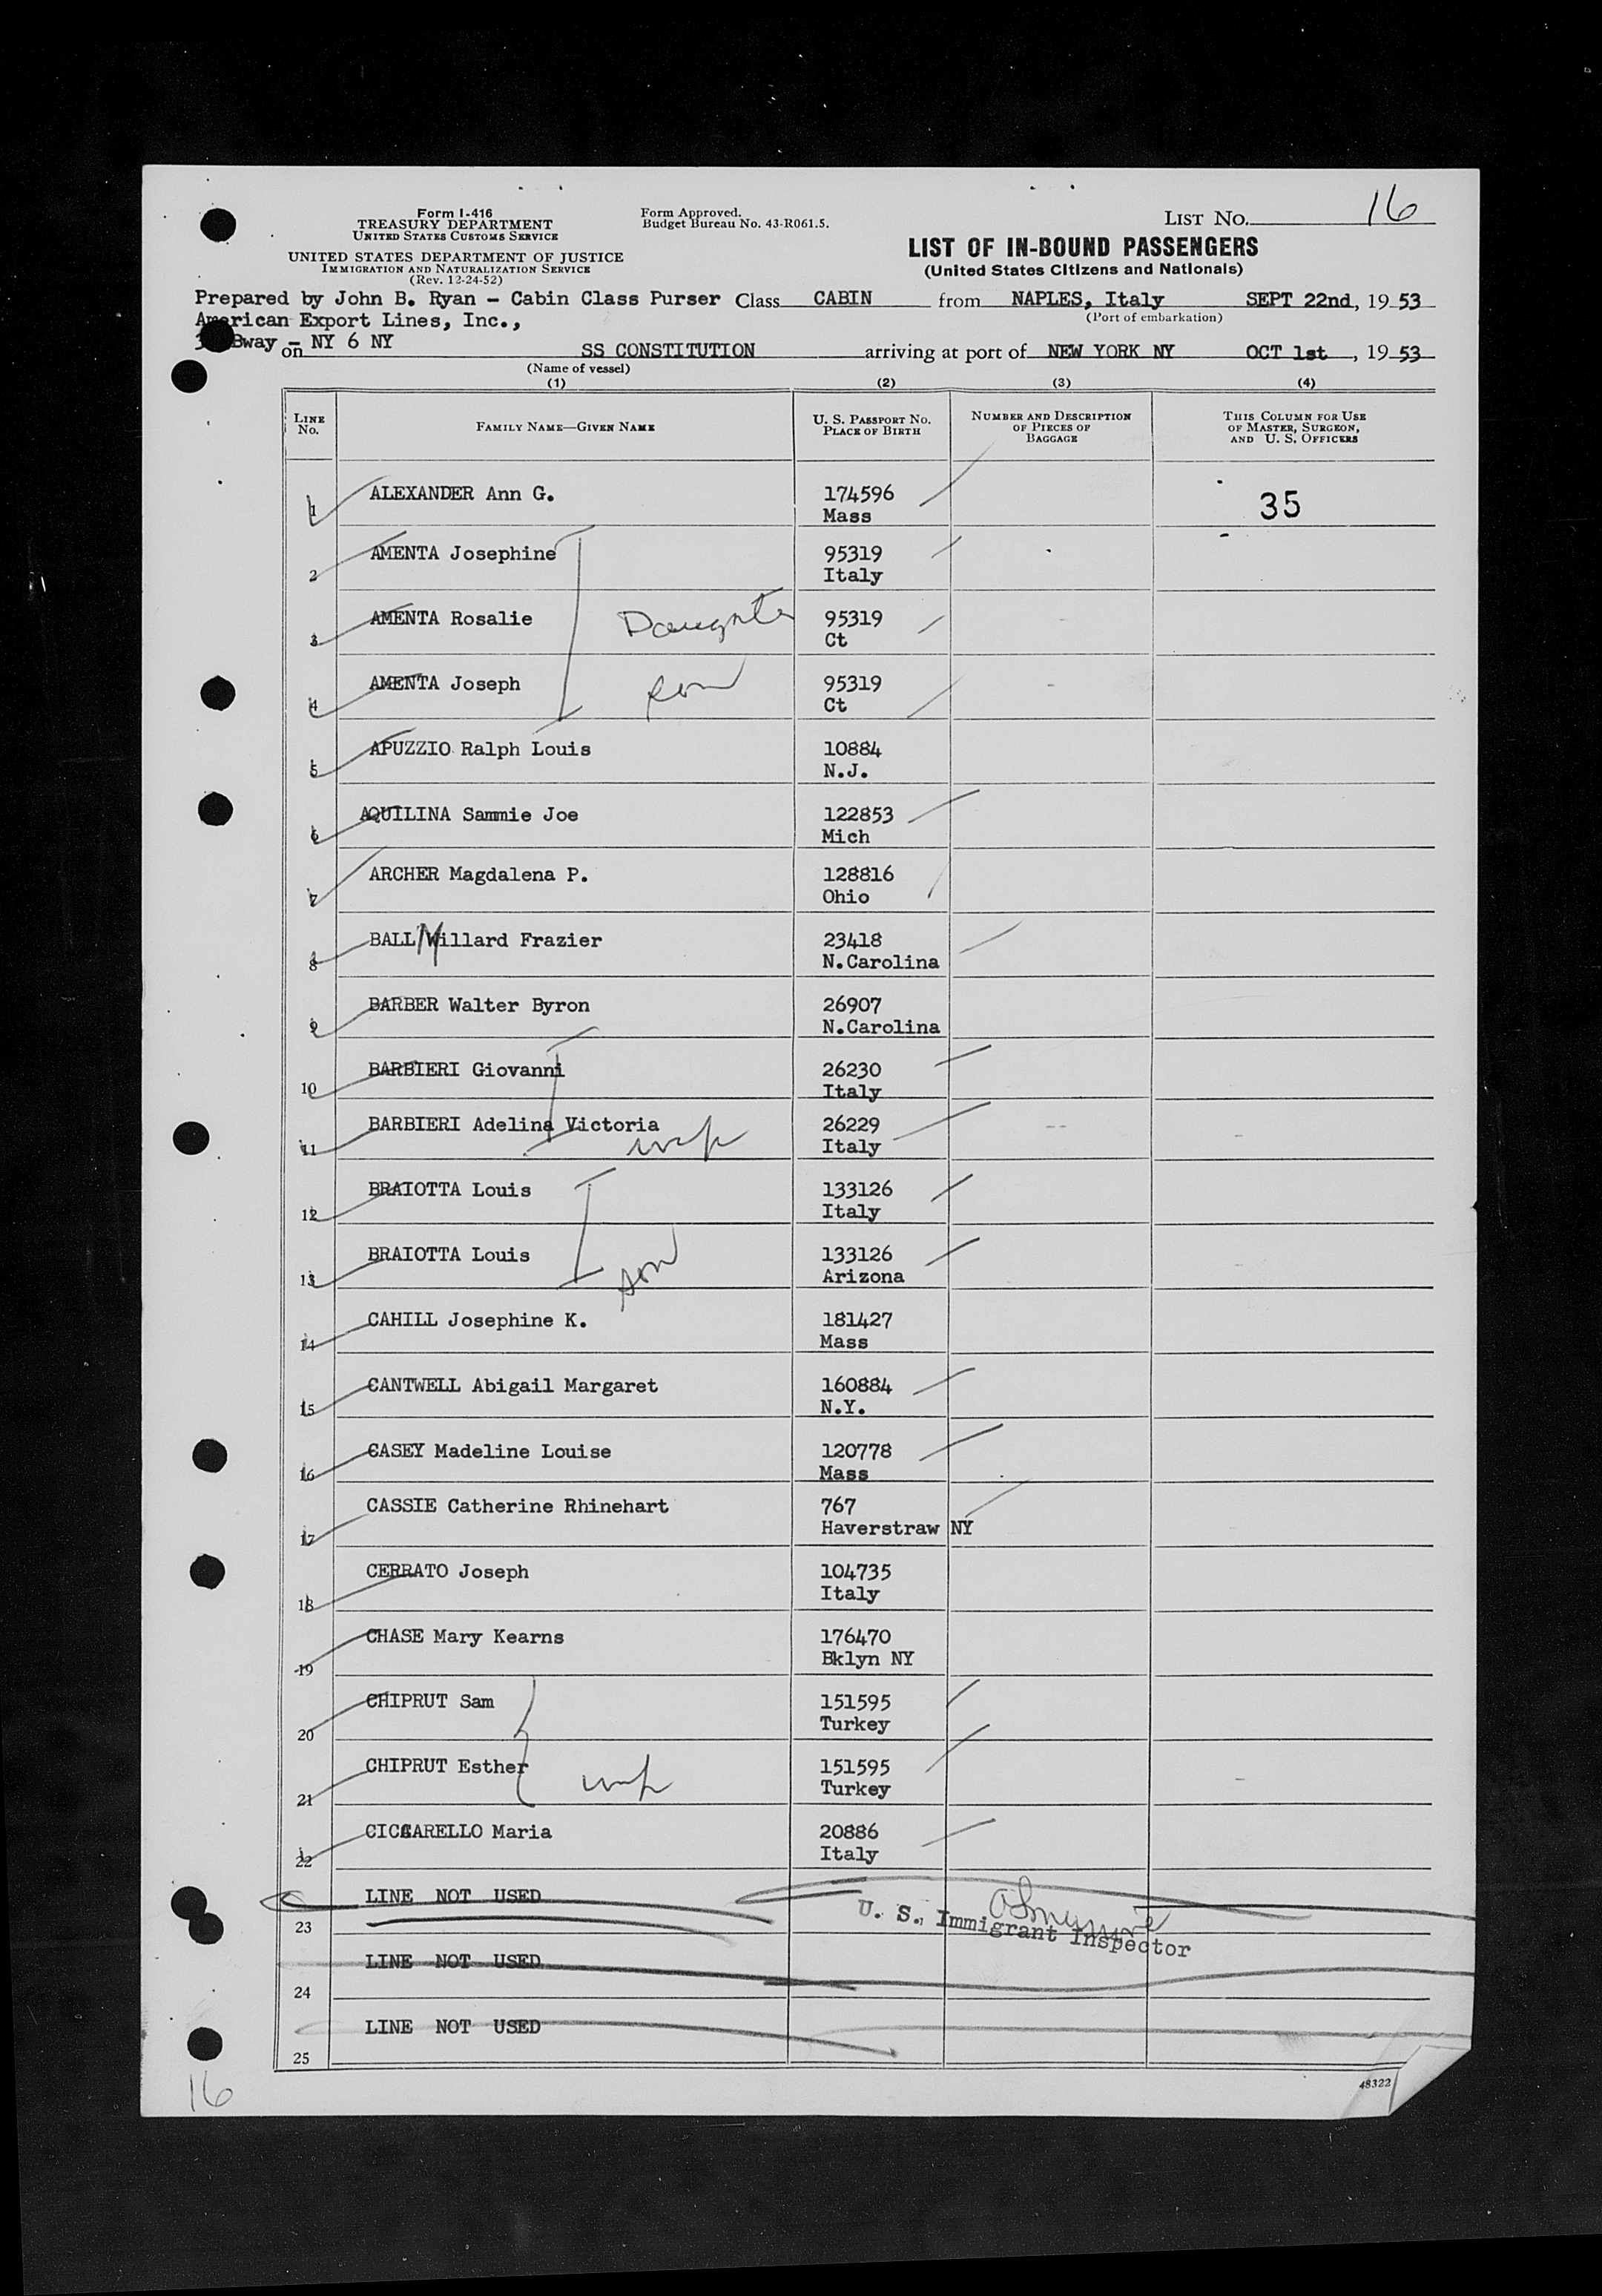 Form I-416
TREASURY DEPARTMENT
UNITED STATES CUSTOMS SERVICE
UNITED STATES DEPARTMENT OF JUSTICE
IMMIGRATION AND NATURALIZATION SERVICE
(Rev. 12-24-52)
Form Approved.
Budget Bureau No. 43-R061.5.
LIST No. 16
LIST OF IN-BOUND PASSENGERS
(United States Citizens and Nationals)
Prepared by John B. Ryan - Cabin Class Purser Class CABIN from NAPLES, Italy SEPT 22nd, 19 53
(Port of embarkation)
American Export Lines, Inc.,
Bway - NY 6 NY
on SS CONSTITUTION arriving at port of NEW YORK NY OCT 1st, 19 53
(Name of vessel)
(1) (2) (3) (4)
LINE No. FAMILY NAME—GIVEN NAME U. S. PASSPORT No. PLACE OF BIRTH NUMBER AND DESCRIPTION OF PIECES OF BAGGAGE THIS COLUMN FOR USE OF MASTER, SURGEON, AND U. S. OFFICERS
1 ALEXANDER Ann G. 174596 35
Mass
2 AMENTA Josephine 95319
Italy
3 AMENTA Rosalie Daughter 95319
Ct
4 AMENTA Joseph son 95319
Ct
5 APUZZIO Ralph Louis 10884
N.J.
6 AQUILINA Sammie Joe 122853
Mich
7 ARCHER Magdalena P. 128816
Ohio
8 BALL Millard Frazier 23418
N.Carolina
9 BARBER Walter Byron 26907
N.Carolina
10 BARBIERI Giovanni 26230
Italy
11 BARBIERI Adelina Victoria wife 26229
Italy
12 BRAIOTTA Louis 133126
Italy
13 BRAIOTTA Louis son 133126
Arizona
14 CAHILL Josephine K. 181427
Mass
15 CANTWELL Abigail Margaret 160884
N.Y.
16 CASEY Madeline Louise 120778
Mass
17 CASSIE Catherine Rhinehart 767
Haverstraw NY
18 CERRATO Joseph 104735
Italy
19 CHASE Mary Kearns 176470
Bklyn NY
20 CHIPRUT Sam 151595
Turkey
21 CHIPRUT Esther wife 151595
Turkey
22 CICCARELLO Maria 20886
Italy
23 LINE NOT USED
U. S. Immigrant Inspector
24 LINE NOT USED
25 LINE NOT USED
48322
16